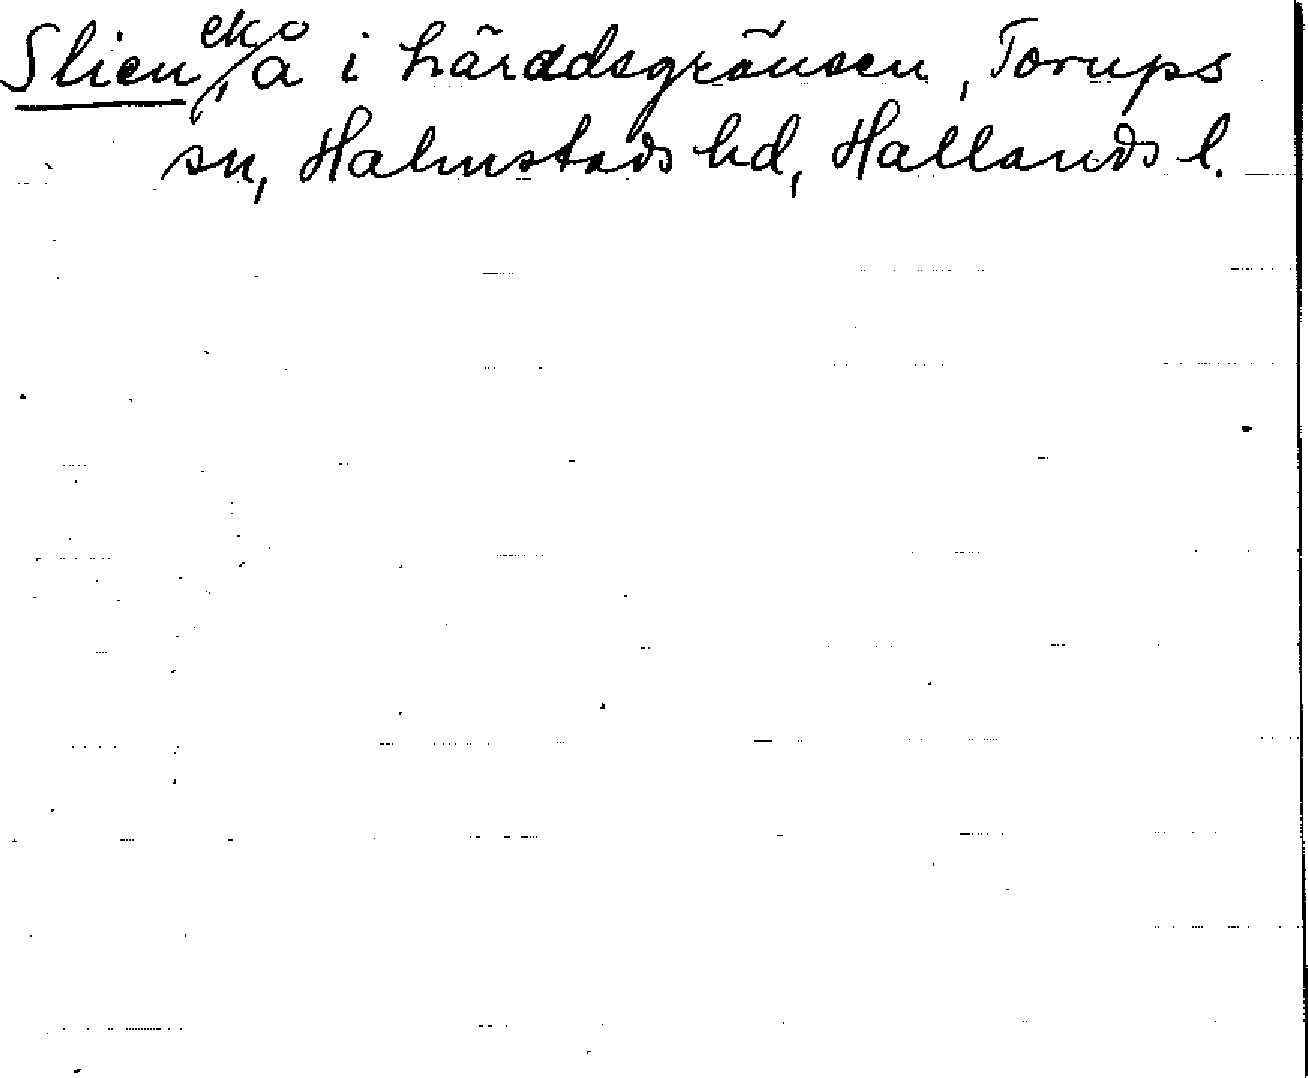 Slien, eko å i häraddsgränsen, Torups
sn, Halmstads hd, Hallands l.